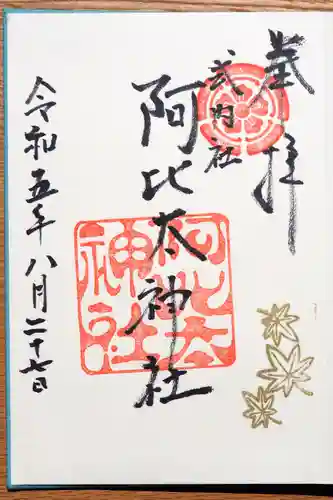 奉拝
式内社
阿比太神社
令和五年八月二十七日
阿比太
神社